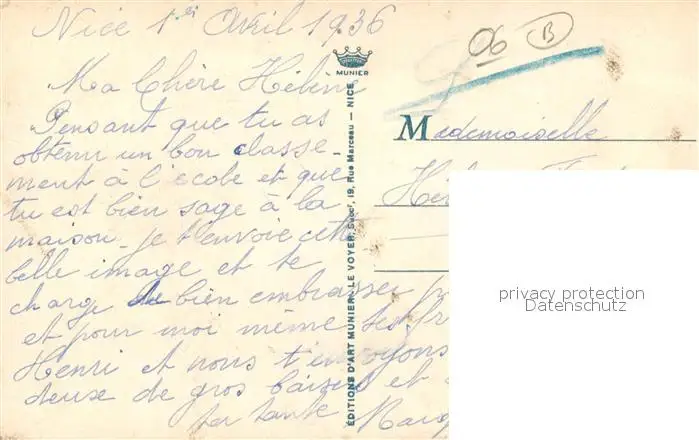 Nice 1er Avril 1936
Ma Chère Hélène
Pensant que tu as
obtenu un bon classe-
ment à l'école et que
tu est bien sage à la
maison je t'envoie cette
belle image et te
charge de bien embrasser
et pour moi même tes
Henri et nous t'envoyons
deux de gros baisers et
ta tante
MUNIER
ÉDITIONS D'ART MUNIER - LE VOYER, Succr, 19, Rue Marceau - NICE
06 B
Mademoiselle
privacy protection
Datenschutz